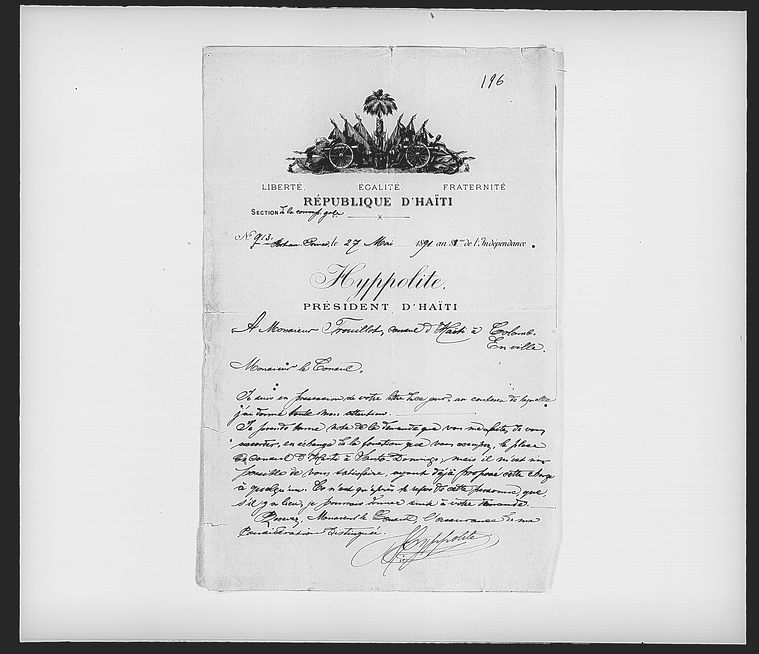 196
LIBERTÉ. ÉGALITÉ. FRATERNITÉ
RÉPUBLIQUE D'HAÏTI
SECTION de la corresp. gale
N° 913. Port-au-Prince, le 27 Mai 1891 an 88me de l'Indépendance.
Hyppolite.
PRÉSIDENT D'HAÏTI
A Monsieur Trouillot, consul d'Haïti à Colomb.
En ville.
Monsieur le Consul,
Je suis en possession de votre lettre de ce jour, au contenu de laquelle
j'ai donné toute mon attention.
Je prends bonne note de la demande que vous me faites, de vous
accorder, en échange de la fonction que vous occupez, la place
de Consul d'Haïti à Santo Domingo, mais il m'est im-
possible de vous satisfaire, ayant déjà proposé cette charge
à quelqu'un. Ce n'est qu'après le refus de cette personne que,
s'il y a lieu, je pourrais donner suite à votre demande.
Recevez, Monsieur le Consul, l'assurance de ma
Considération distinguée.
Hyppolite